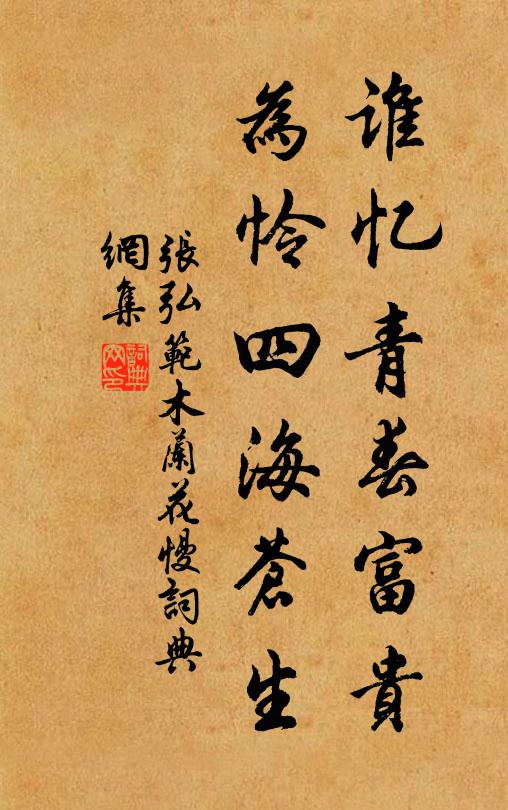 谁忆青春富貴
為怜四海蒼生
張弘範木蘭花慢詞典
網集
詞典網印